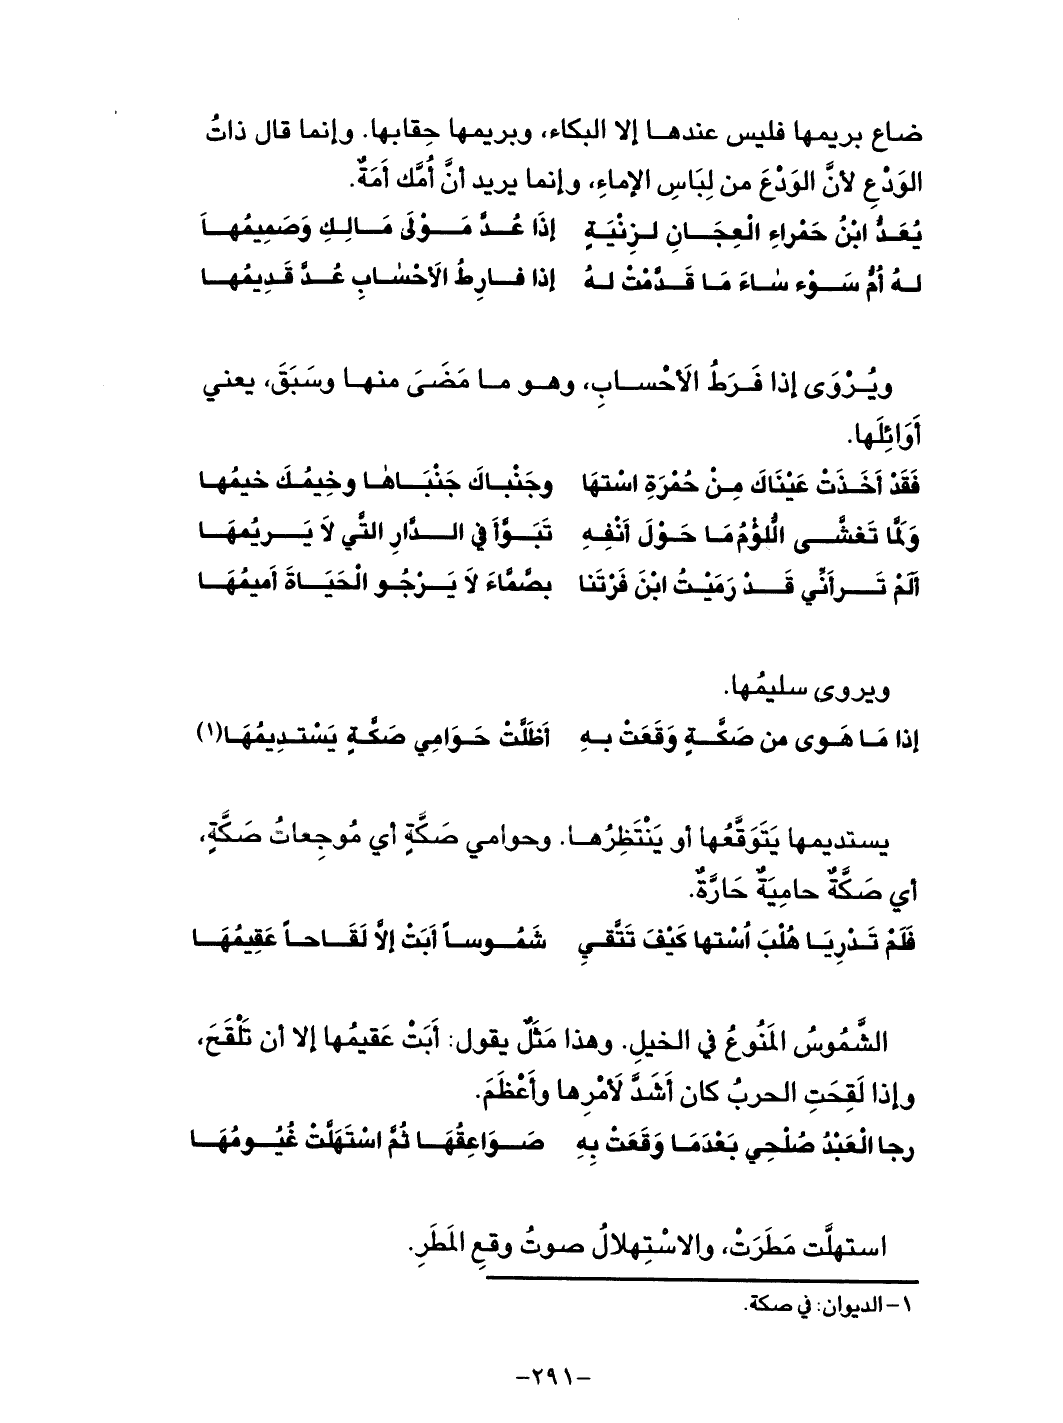 ضاع بريمها فليس عندها إلا البكاء، وبريمها حِقابها. وإنما قال ذاتُ
الوَدْعِ لأنَّ الوَدْعَ من لِبَاسِ الإماءِ، وإنما يريد أنَّ أُمَّك أَمَةٌ.
يُعَدُّ ابْنُ حَمْراءِ الْعِجَانِ لزِنْيَةٍ إذَا عُدَّ مَوْلَى مَالِكٍ وَصَمِيمُهَا
لهُ أُمُّ سَوْء سَاءَ مَا قَدَّمْتْ لهُ إذا فارِطُ الَاحْسَابِ عُدَّ قَدِيمُهَا
ويُرْوَى إذا فَرَطُ الَاحْسابِ، وهو ما مَضَىَ منها وسَبَقَ، يعني
أَوَائِلَها.
فَقَدْ أَخَذَتْ عَيْنَاكَ مِنْ حُمْرَةِ اسْتهَا وجَنْباكَ جَنْبَاهَا وخِيمُكَ خيمُها
وَلَمَّا تَغشَّى اللُّؤْمُ مَا حَوْلَ أَنْفِهِ تَبَوَّأَ في الدَّارِ التَّي لاَ يَرِيمُهَا
أَلَمْ تَرأَنِّي قَدْ رَمَيْتُ ابْنَ فَرْتَنا بصُمَّاءَ لاَ يَرْجُو الْحَيَاةَ أميمُهَا
ويروى سليمُها.
إذا مَا هَوى من صَكَّةٍ وَقَعَتْ بهِ أظَلَّتْ حَوَامِي صَكَّةٍ يَسْتدِيمُهَا(١)
يستديمها يَتَوَقَّعُها أو يَنْتَظِرُها. وحوامي صَكَّةٍ أي مُوجِعاتُ صَكَّةٍ،
أي صَكَّةٌ حامِيَةٌ حَارَّةٌ.
فَلَمْ تَدْرِيَا هُلْبَ اُسْتها كَيْفَ تَتَّقيِ شَمُوساً أبَتْ إلاَّ لَقَاحاً عَقِيمُهَا
الشَّمُوسُ المَنُوعُ في الخيلِ. وهذا مَثَلٌ يقول: أَبَتْ عَقيمُها إلا أن تَلْقَحَ،
وإذا لَقِحَتِ الحربُ كان أَشَدَّ لَامْرِها وأَعْظَمَ.
رجا الْعَبْدُ صُلْحِي بَعْدَمَا وَقَعَتْ بِهِ صَوَاعِقُهَا ثُمَّ اسْتَهَلَّتْ غُيُومُهَا
استهلَّت مَطَرَتْ، والاسْتِهلالُ صوتُ وقعِ المَطَرِ.
١- الديوان: في صكة.
-٢٩١-